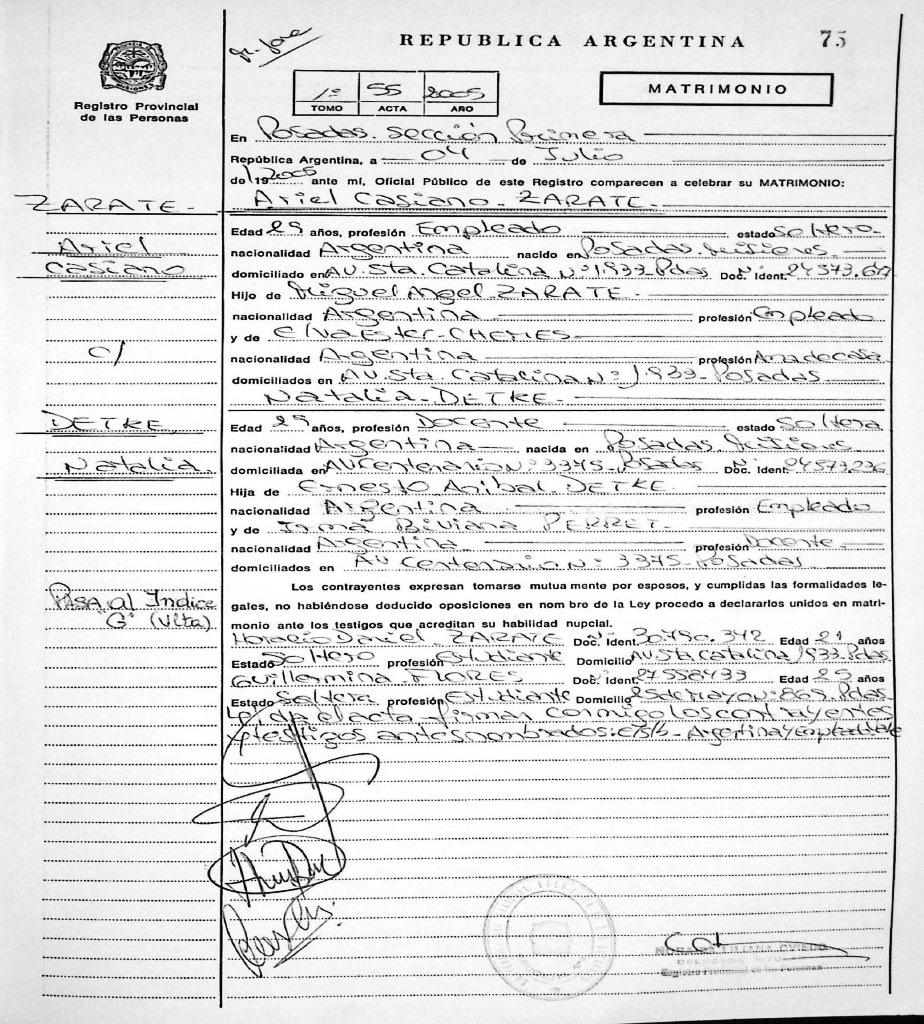 REPUBLICA ARGENTINA
75
Registro Provincial
de las Personas
1º 55 2005
TOMO ACTA AÑO
MATRIMONIO
En Posadas. Sección Primera
República Argentina, a 04 de Julio
de 2005 ante mí, Oficial Público de este Registro comparecen a celebrar su MATRIMONIO:
ZARATE.
Ariel
Casiano
c/
DETKE
Natalia.
Pasa al Indice
"G" (Vlta)
Ariel Casiano. ZARATE.
Edad 29 años, profesión Empleado estado Soltero.
nacionalidad Argentina nacido en Posadas. Misiones
domiciliado en Av. Sta. Catalina Nº 1.933. Pdas Doc. Ident.
Hijo de Miguel Angel ZARATE.
nacionalidad Argentina profesión Empleado
y de Elva Ester. CHEMES
nacionalidad Argentina profesión Ama de casa
domiciliados en Av. Sta. Catalina Nº 1.933. Posadas
Natalia. DETKE.
Edad 29 años, profesión Docente estado Soltera
nacionalidad Argentina nacida en Posadas. Misiones
domiciliada en Av Centenario Nº 3375. Posadas Doc. Ident. 24.573.236
Hija de Ernesto Anibal. DETKE.
nacionalidad Argentina profesión Empleado
y de Irma Biviana PERRET.
nacionalidad Argentina profesión Docente.
domiciliados en Av Centenario Nº 3375. Posadas
Los contrayentes expresan tomarse mutua mente por esposos, y cumplidas las formalidades le-
gales, no habiéndose deducido oposiciones en nom bre de la Ley procedo a declararlos unidos en matri-
monio ante los testigos que acreditan su habilidad nupcial.
Horacio Daniel ZARATE Doc. Ident. 30.790.342 Edad 21 años
Estado Soltero profesión Estudiante Domicilio Av. Sta Catalina 1933. Pdas
Guillermina FLORES Doc. Ident. 27558433 Edad 25 años
Estado Soltera profesión Estudiante Domicilio 25 de mayo Nº 869. Pdas
Leída el acta, firman conmigo los contrayentes
y testigos antes nombrados: Argentina y Empleado
LILIANA OVIEDO
Registro Provincial de las Personas